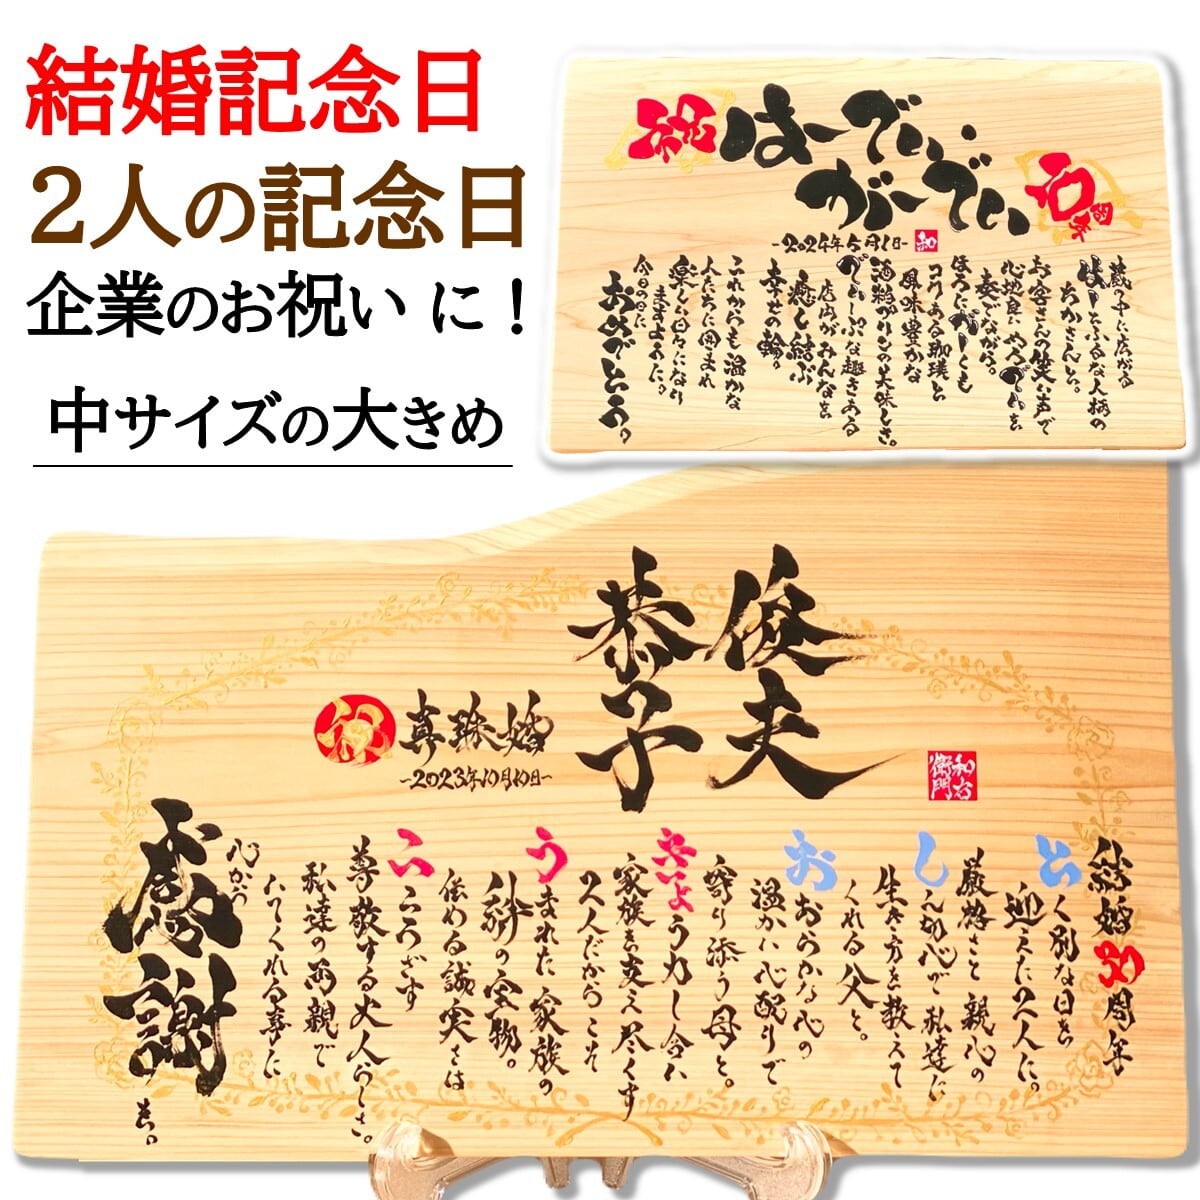 結婚記念日
2人の記念日
企業のお祝いに!
中サイズの大きめ
祝
はーでぃ・
がーでぃん
10周年
-2024年5月1日-
和
蔵の中に広がる
はーとふるな人柄の
ちかさんと。
お客さんの笑い声で
心地良いやらでぃを
奏でながら。
ほろにがーくも
コクある珈琲と
風味豊かな
酒粕がりんの美味しさ。
でぃーぷな趣きある
店内がみんなを
癒し結ぶ
幸せの輪。
これからも温かな
人たちに囲まれ
楽しい日々になり
ますように。
今日の日に
おめでとう。
俊夫
恭子
祝
真珠婚
~2023年10月10日~
和右衛門
結婚30周年
とく別な日を
迎えた2人に。
厳格さと親心の
しん切心で私達に
生き方を教えて
くれる父と。
おおらかな心の
温かい心配りで
寄り添う母と。
きょう力し合い
家族を支え尽くす
2人だからこそ
うまれた家族の
絆の宝物。
休める誠実とは
こころざす
尊敬する大人らしさ。
私達の両親で
いてくれる事に
心から
感謝
を。